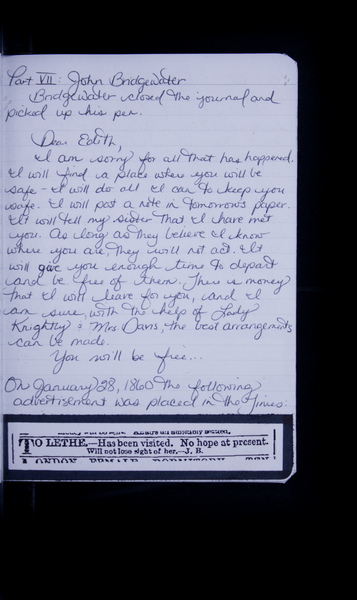 Part VII: John Bridgewater
Bridgewater closed the journal and
picked up his pen.
Dear Edith,
I am sorry for all that has happened.
I will find a place where you will be
safe - I will do all I can to keep you
safe. I will post a note in tomorrow's paper.
It will tell my sister that I have met
you. As long as they believe I know
where you are, they will not act. It
will give you enough time to depart
and be free of them. There is money
that I will leave for you, and I
am sure, with the help of Lady
Knightly & Mrs. Davis, the best arrangements
can be made.
You will be free...
On January 28, 1860 the following
advertisement was placed in the Times:
TO LETHE.—Has been visited. No hope at present.
Will not lose sight of her.—J. B.